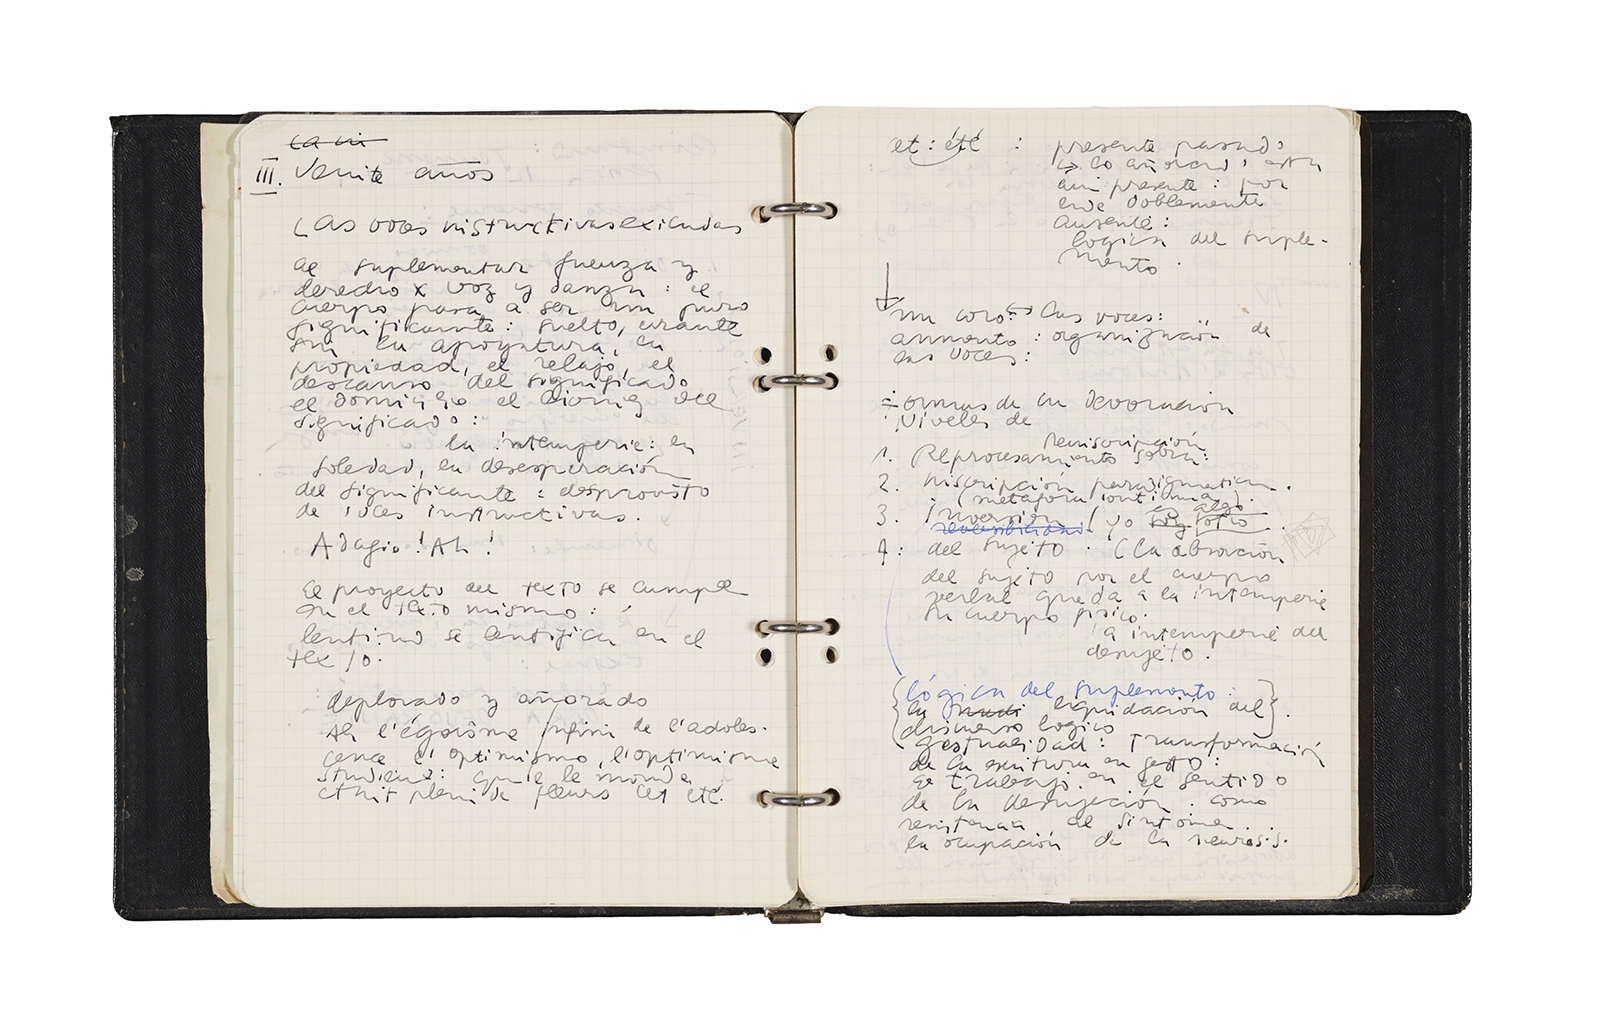 III. Veinte años
Las voces instructivas exiladas
al suplementar fuerza y
derecho x voz y danza : el
cuerpo pasa a ser un puro
significante : suelto, errante
sin la apoyatura, la
propiedad, el relajo, el
descanso del significado
el domingo el
significado :
la intemperie : en
soledad, en desesperación
del significante : desprovisto
de voces instructivas.
Adagio ! Ah !
El proyecto del texto se cumple
en el texto mismo :
se en el
texto.
deplorado y añorado
Ah l'égoïsme infini de l'adoles-
cence l'optimismo, l'optimisme
studieux : que le monde
était plein de fleurs cet été.
et : été : presente pasado
↳ lo añorado esta
ahi presente : por
ende doblemente
ausente :
logica del suple-
mento.
↓
un coro ↔ las voces :
aumento : organización de
las voces :
Formas de la devoración
Niveles de
reinscripción
1. Reprocesamiento sobre :
2. inscripción paradigmatica.
(metáfora continua).
3. Inversión (yo soy otro
algo
reversibilidad
4 : del sujeto. (la absorción
del sujeto por el cuerpo
verbal queda a la intemperie
su cuerpo fisico.
la intemperie del
desujeto.
{lógica del suplemento :
la liquidación del }.
discurso logico
gestualidad : Transformación
de la escritura en gesto :
El trabajo en el sentido
de la desujeción. como
resistencia al sintoma.
la ocupación de la neurosis.